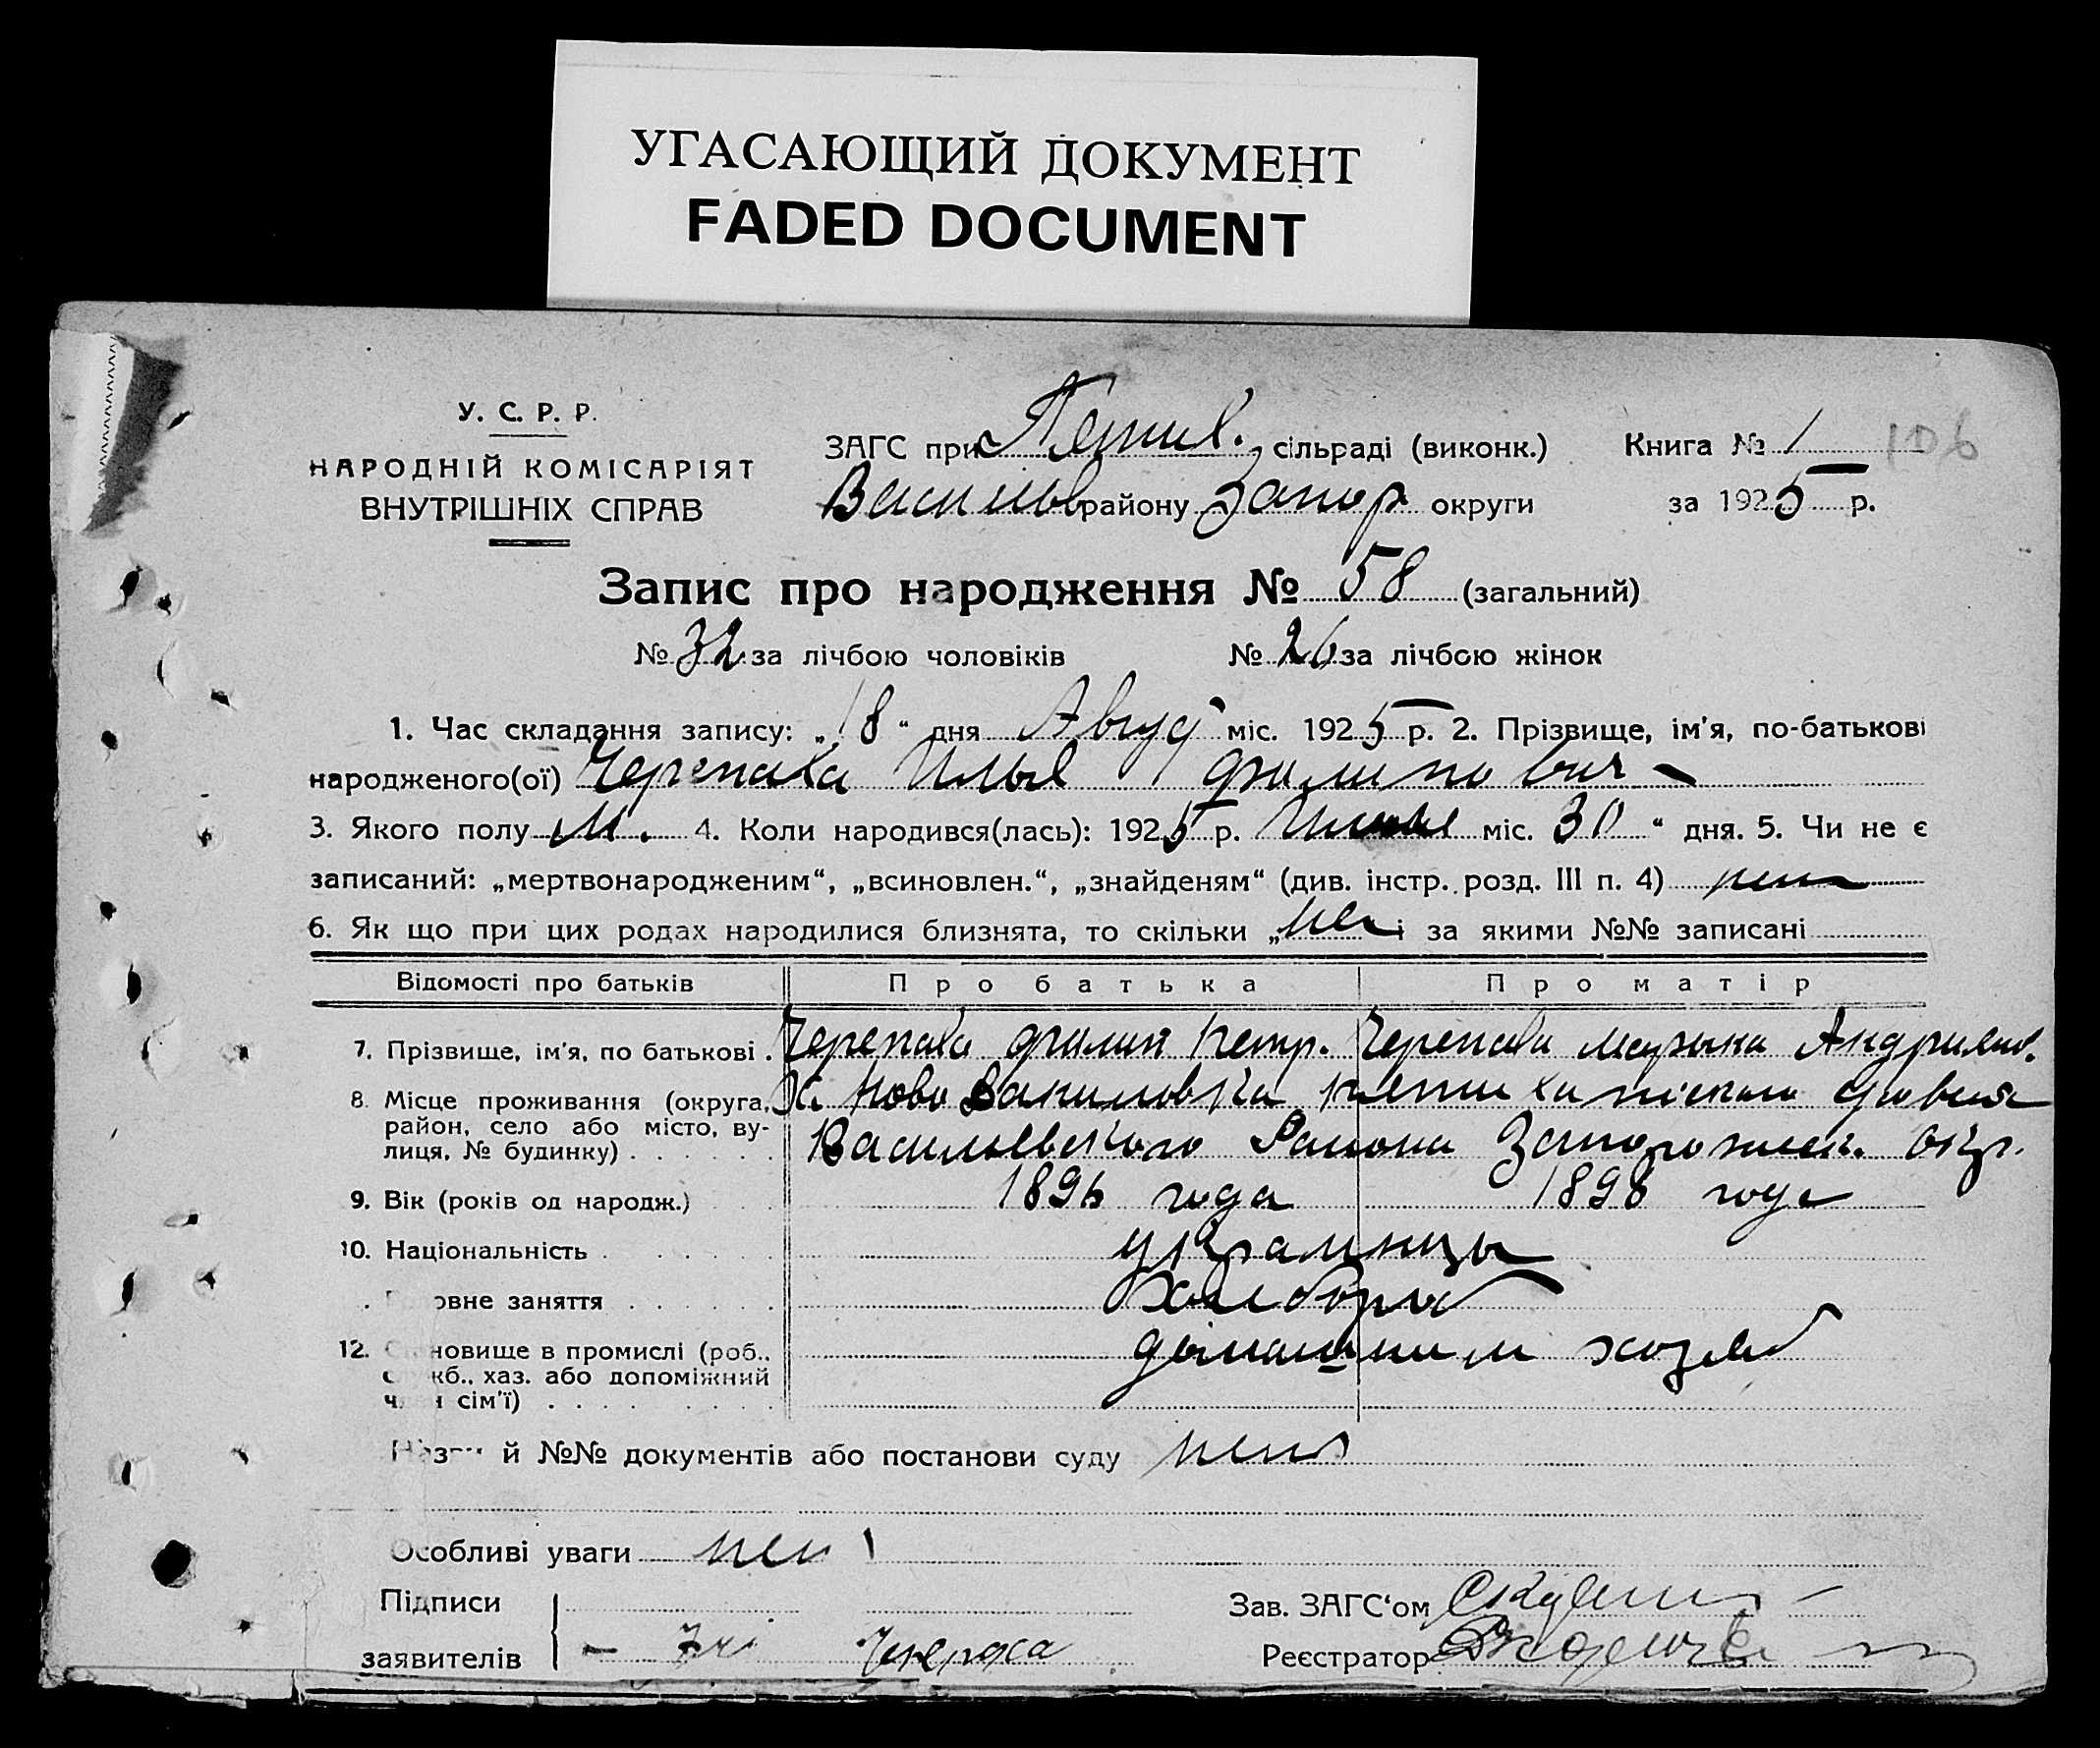 УГАСАЮЩИЙ ДОКУМЕНТ
FADED DOCUMENT
У. С. Р. Р.
НАРОДНІЙ КОМІСАРІЯТ
ВНУТРІШНІХ СПРАВ
ЗАГС при сільраді (виконк.)
Васильев району Запор округи
Книга № 1 106
за 1925 р.
Запис про народження № 58 (загальний)
№ 32 за лічбою чоловіків № 26 за лічбою жінок
1. Час складання запису: „18“ дня Авгус міс. 1925 р. 2. Прізвище, ім'я, по-батькові
народженого(ої) Черепаха Илья Филипович
3. Якого полу М. 4. Коли народився(лась): 1925 р. міс. 30 “ дня. 5. Чи не є
записаний: „мертвонародженим“, „всиновлен.“, „знайденям“ (див. інстр. розд. III п. 4) нет
6. Як що при цих родах народилися близнята, то скільки „нет і за якими №№ записані
Відомості про батьків Про батька Про матір
7. Прізвище, ім'я, по батькові . Черепаха Филип Петр. Черепаха Андриян.
8. Місце проживання (округа, Х. Ново
район, село або місто, ву- Васильевского Района Запорожск. окр.
лиця, № будинку) . . . . . .
9. Вік (років од народж.) 1896 года 1898 года
10. Національність . украинцы
овне заняття . . . . . . Хлебороб
12. Становище в промислі (роб., домашним хозяев
служб., хаз. або допоміжний
член сім'ї) . . . .
Назви й №№ документів або постанови суду нет
Особливі уваги нет
Підписи
заявителів Черепаха
Зав. ЗАГС‘ом
Реєстратор